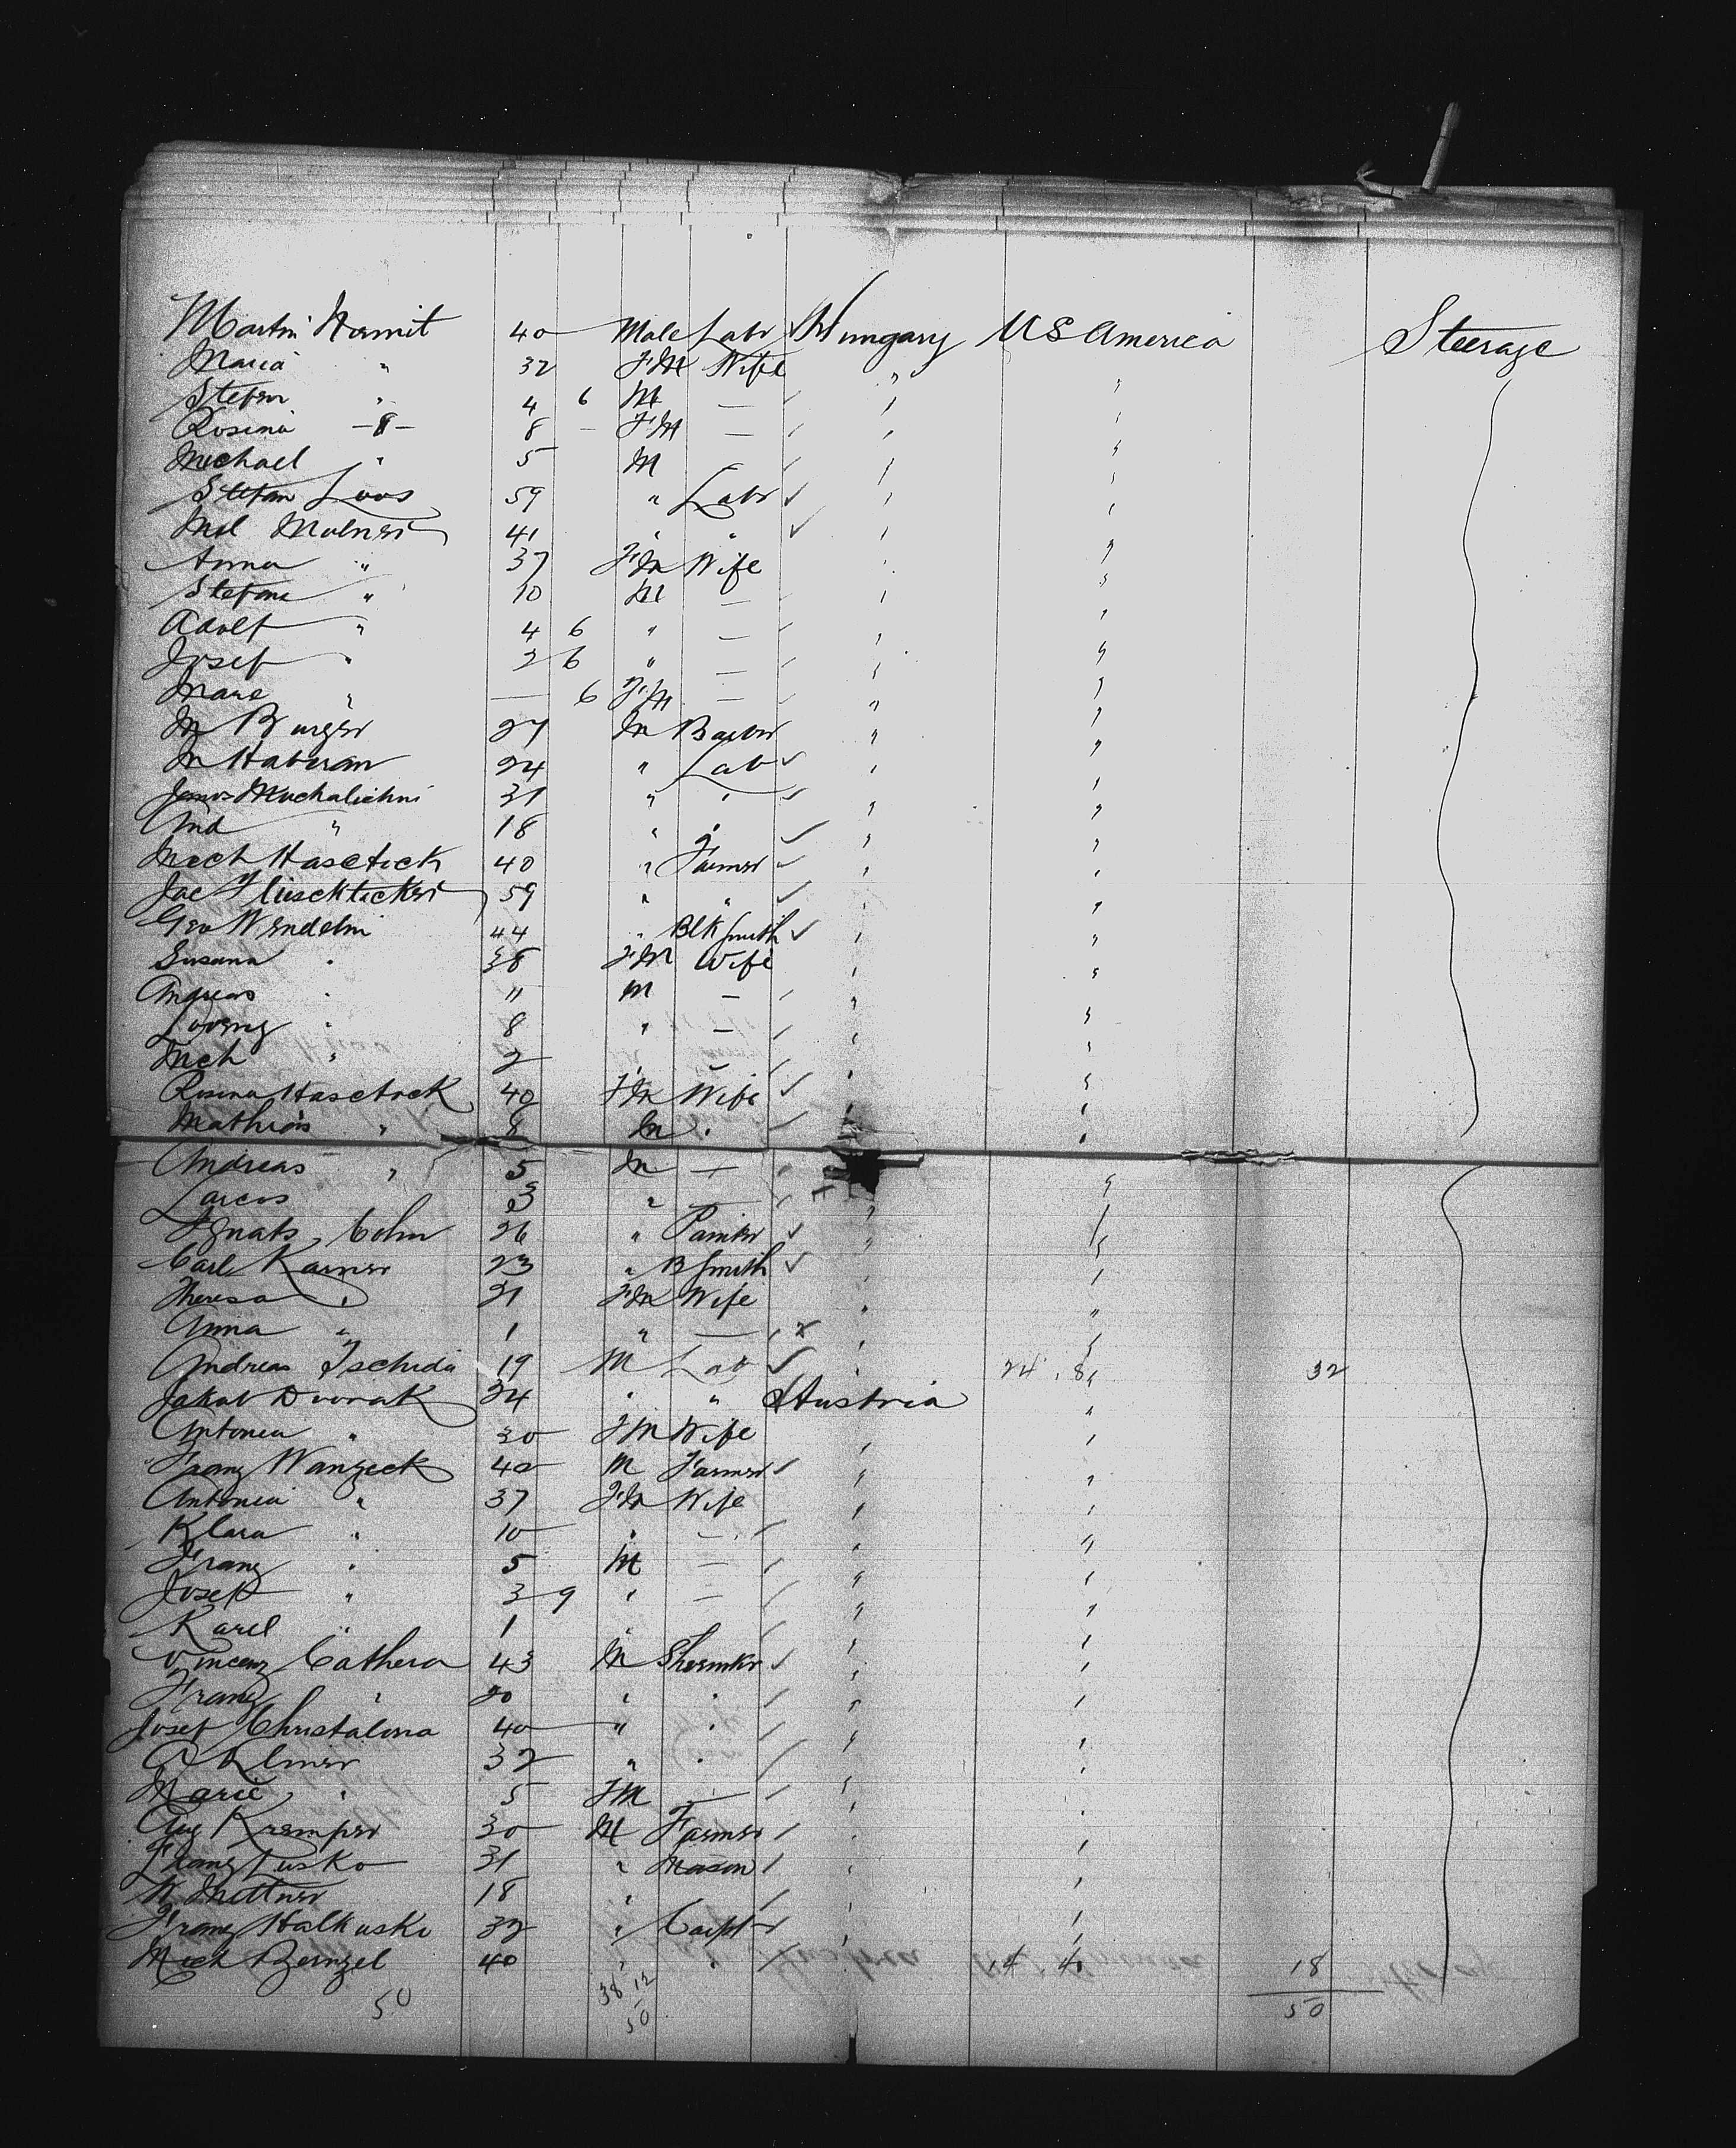 Martin Hermit 40 Male Labr Hungary U S America Steerage
Maria " 32 FM Wife " "
Stefan " 4 6 M — " "
Rosina -"- 8 — FM — " "
Michael " 5 M " "
Stefan Loos 59 " Labr " "
Mel Molner 41 " " " "
Anna " 37 FM Wife " "
Stefan " 10 M — " "
Adolf " 4 6 " — " "
Josef " 2 6 " — " "
Marie " — 6 FM — " "
M Burger 27 M Barbr " "
M Haberan 24 " Lab " "
Janos Muchalichni 31 " " " "
And " 18 " " " "
Mech Hasetick 40 " Farmer " "
Jac 59 " " " "
Geo Wendelin 44 " Blk Smith " "
Susana " 38 FM Wife " "
Andreas " 11 M — " "
Lorenz " 8 " — " "
Mch " 2 " — " "
Rosina Hasetick 40 FM Wife " "
Mathias " 8 M " " "
Andreas " 5 M — " "
3 " — " "
Ignats Cohn 26 " " "
Carl Karner 23 " B Smith " "
Theresa " 21 FM Wife " "
Anna " 1 " — " "
Andreas Tschida 19 M Lab " 24 . 8 " 32
Jakob Dvorak 34 " " Austria "
Antonia " 30 FM Wife " "
Franz Wanzeck 40 M Farmer " "
Antonia " 37 FM Wife " "
Klara " 10 " — " "
Franz " 5 M — " "
Josef " 3 9 " — " "
Karel " 1 " " "
Vincenz Cathera 43 M Shoemkr " "
Franz " 20 " " " "
Josef Christalina 40 " " " "
A Elmer 32 " " " "
Marie " 5 FM — " "
Aug Kremper 30 M Farmer " "
Franz Lusko 31 " Mason " "
N Mettner 18 " " "
Franz Halkuska 32 " Carptr " "
Mich Bernzel 40 " " 14 4 18
50 38 12 50
50